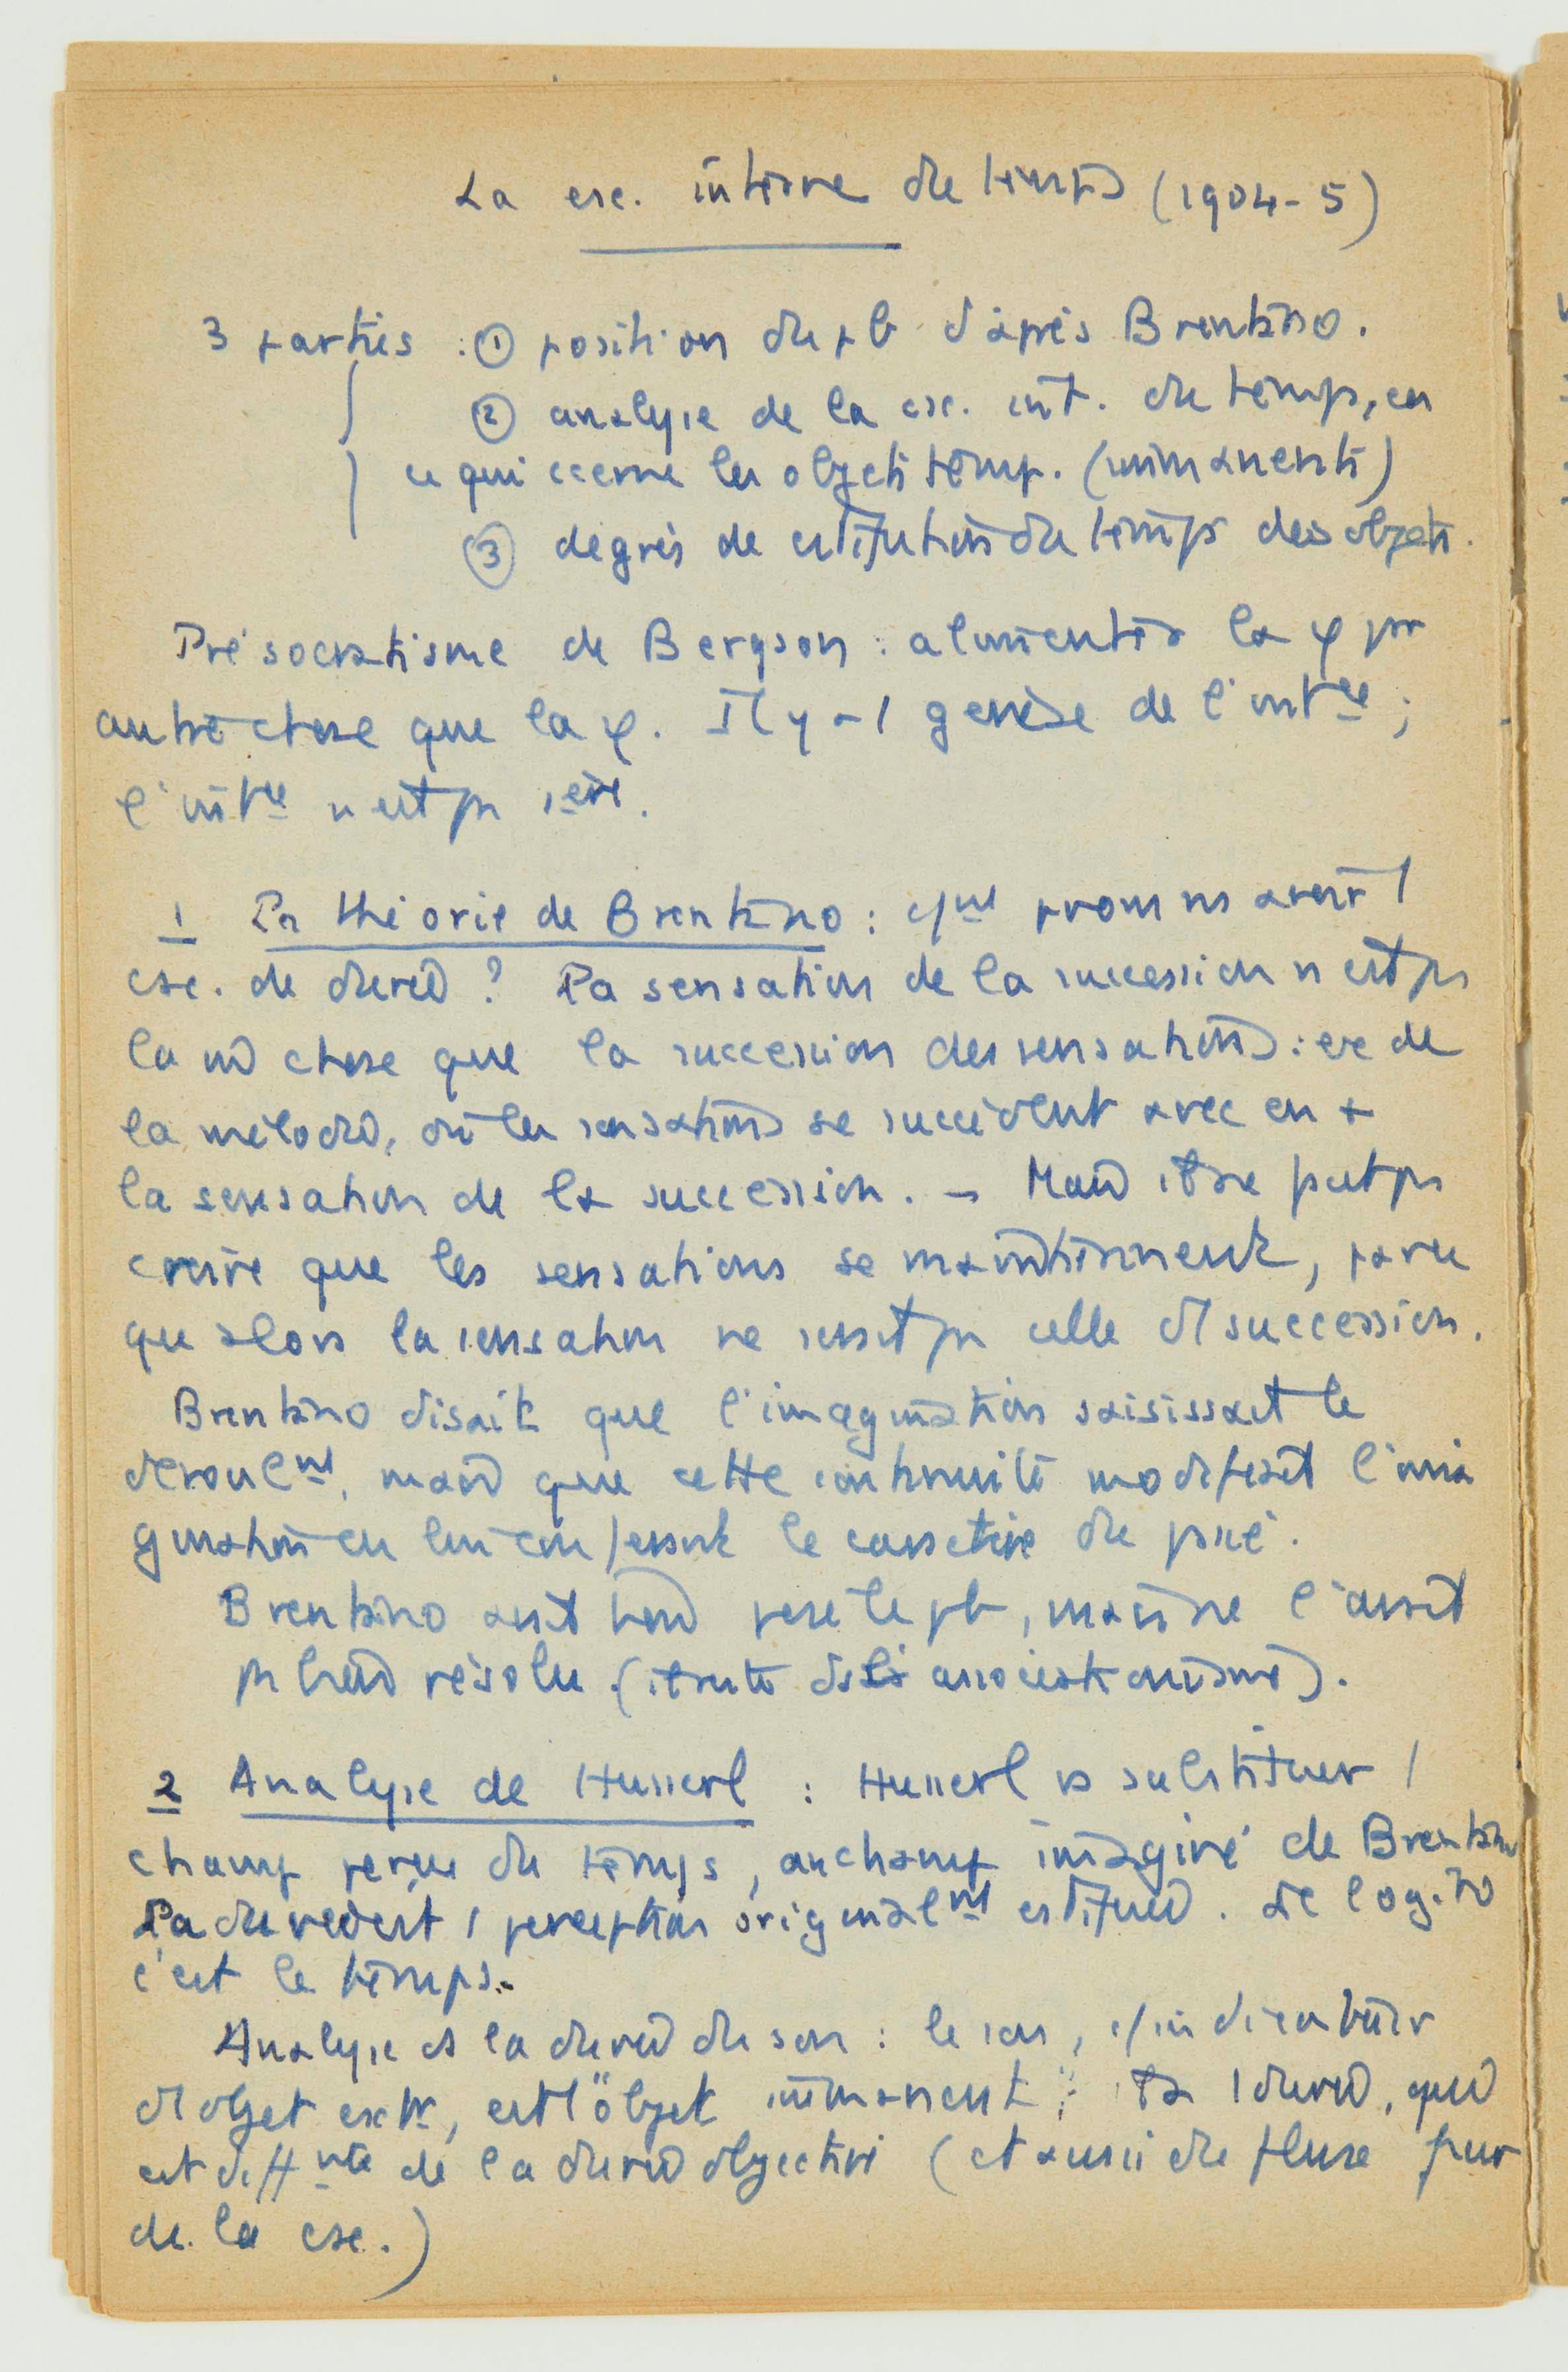 La csc. interne du temps (1904-5)
3 parties : ① position du pb d'après Brentano.
② analyse de la csc. int. du temps, en
ce qui ccerne les objets temp. (immanents)
③ degrés de cstitution du temps des objets.
Présocratisme de Bergson : alimenter la φ par
autre chose que la φ. Il y a 1 genèse de l'intce ;
l'intce n'est pas 1ère.
1 La théorie de Brentano : cmt pouvons ns avoir 1
csc. de durée ? La sensation de la succession n'est pas
la m̂ chose que la succession des sensations : ex de
la mélodie, où les sensations se succèdent avec en +
la sensation de la succession. - Mais on ne peut pas
croire que les sensations se maintiennent, parce
qu'alors la sensation ne serait pas celle d'1 succession.
Brentano disait que l'imagination saisissait le
déroulmt, mais que cette continuité modifiait l'ima
gination en lui conférant le caractère du passé.
Brentano avait bien posé le pb, mais ne l'avait
pas bien résolu (reste ds l'associationisme).
2 Analyse de Husserl : Husserl va substituer 1
champ perçu du temps, au champ imaginé de Brentano
La durée est 1 perception originalmt cstituée. Le cogito
c'est le temps.
Analyse de la durée du son : le son, s/ indicateur
d'1 objet extr, est 1 "objet immanent" ; 1 durée, qui
est diffnte de la durée objective (et aussi du flux pur
de la csc.)